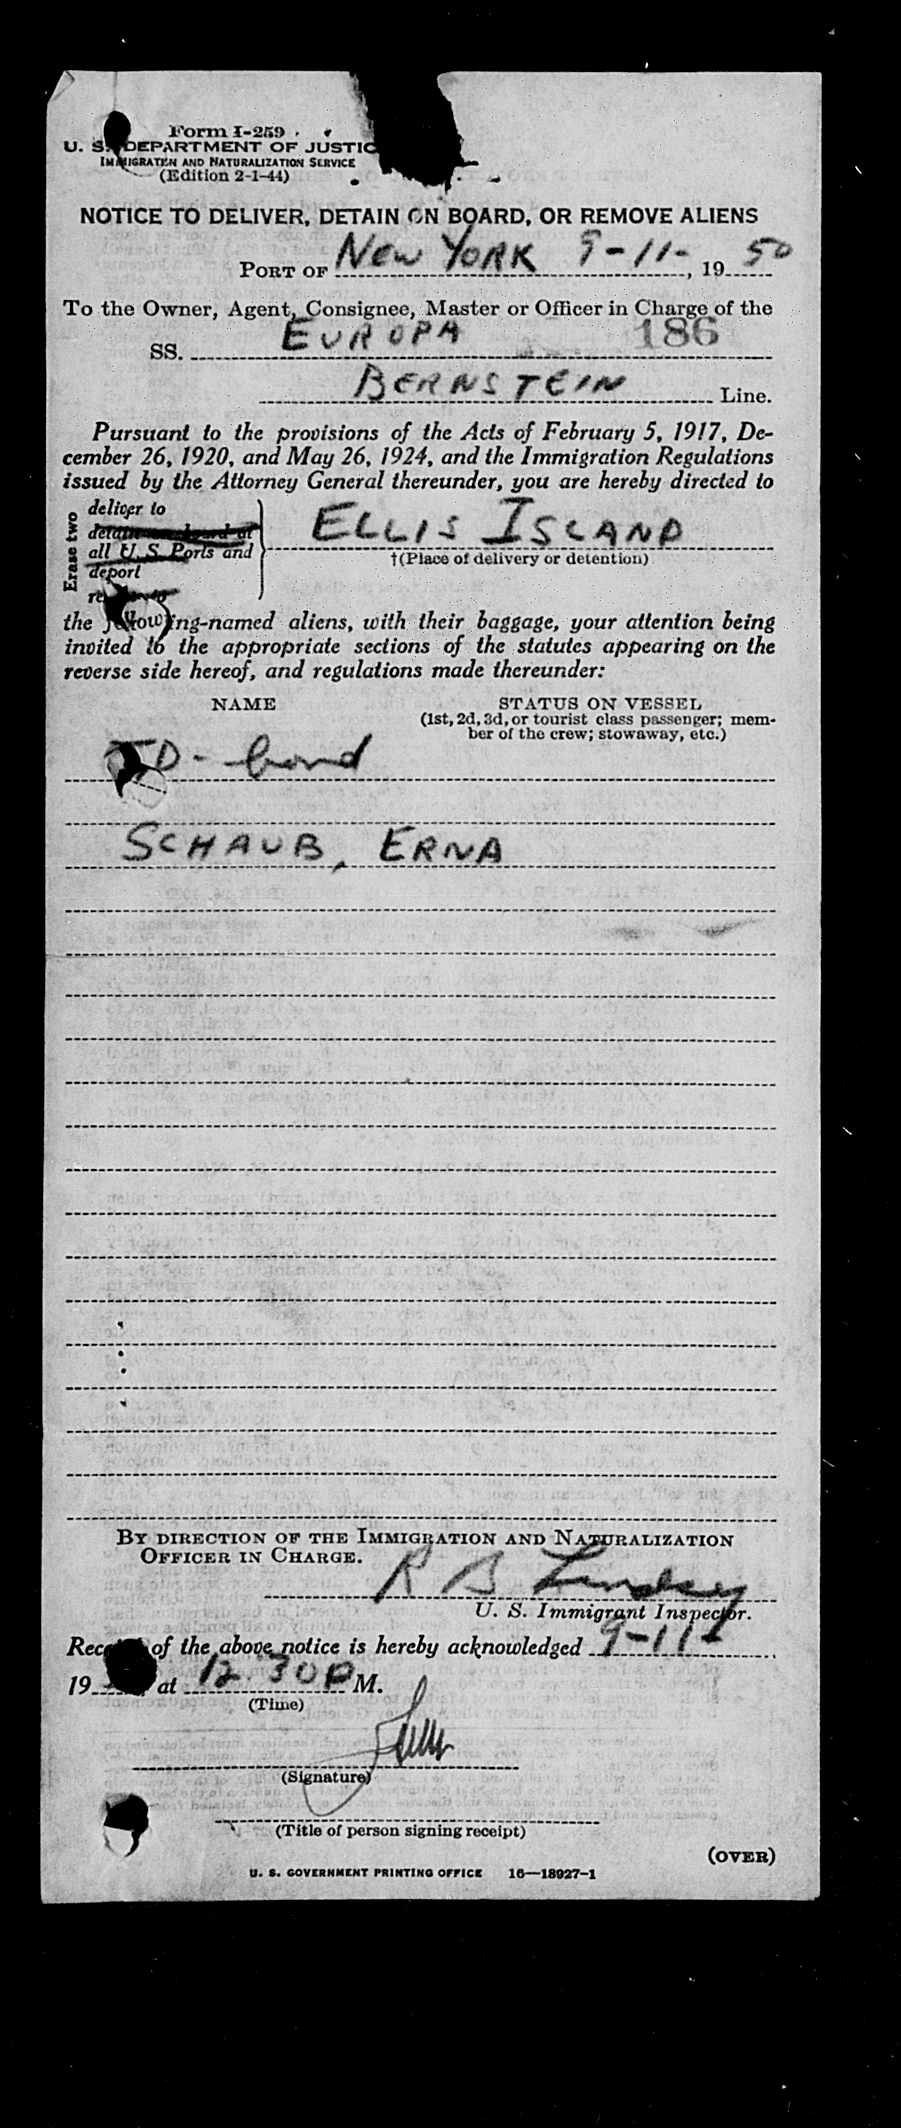 Form I-259
U. S. DEPARTMENT OF JUSTIC
IMMIGRATION AND NATURALIZATION SERVICE
(Edition 2-1-44)
NOTICE TO DELIVER, DETAIN ON BOARD, OR REMOVE ALIENS
PORT OF NEW YORK 9-11-, 19 50
To the Owner, Agent, Consignee, Master or Officer in Charge of the
SS. EUROPA 186
BERNSTEIN Line.
Pursuant to the provisions of the Acts of February 5, 1917, De-
cember 26, 1920, and May 26, 1924, and the Immigration Regulations
issued by the Attorney General thereunder, you are hereby directed to
Erase two
deliver to
detain on board at
all U. S. Ports and
deport
ELLIS ISLAND
†(Place of delivery or detention)
the following-named aliens, with their baggage, your attention being
invited to the appropriate sections of the statutes appearing on the
reverse side hereof, and regulations made thereunder:
NAME
STATUS ON VESSEL
(1st, 2d, 3d, or tourist class passenger; mem-
ber of the crew; stowaway, etc.)
D - bond
SCHAUB, ERNA
BY DIRECTION OF THE IMMIGRATION AND NATURALIZATION
OFFICER IN CHARGE.
R B Lindsey
U. S. Immigrant Inspector.
of the above notice is hereby acknowledged 9-11-,
19 at 12 30 P M.
(Time)
(Signature)
(Title of person signing receipt)
(OVER)
U. S. GOVERNMENT PRINTING OFFICE 16—18927-1